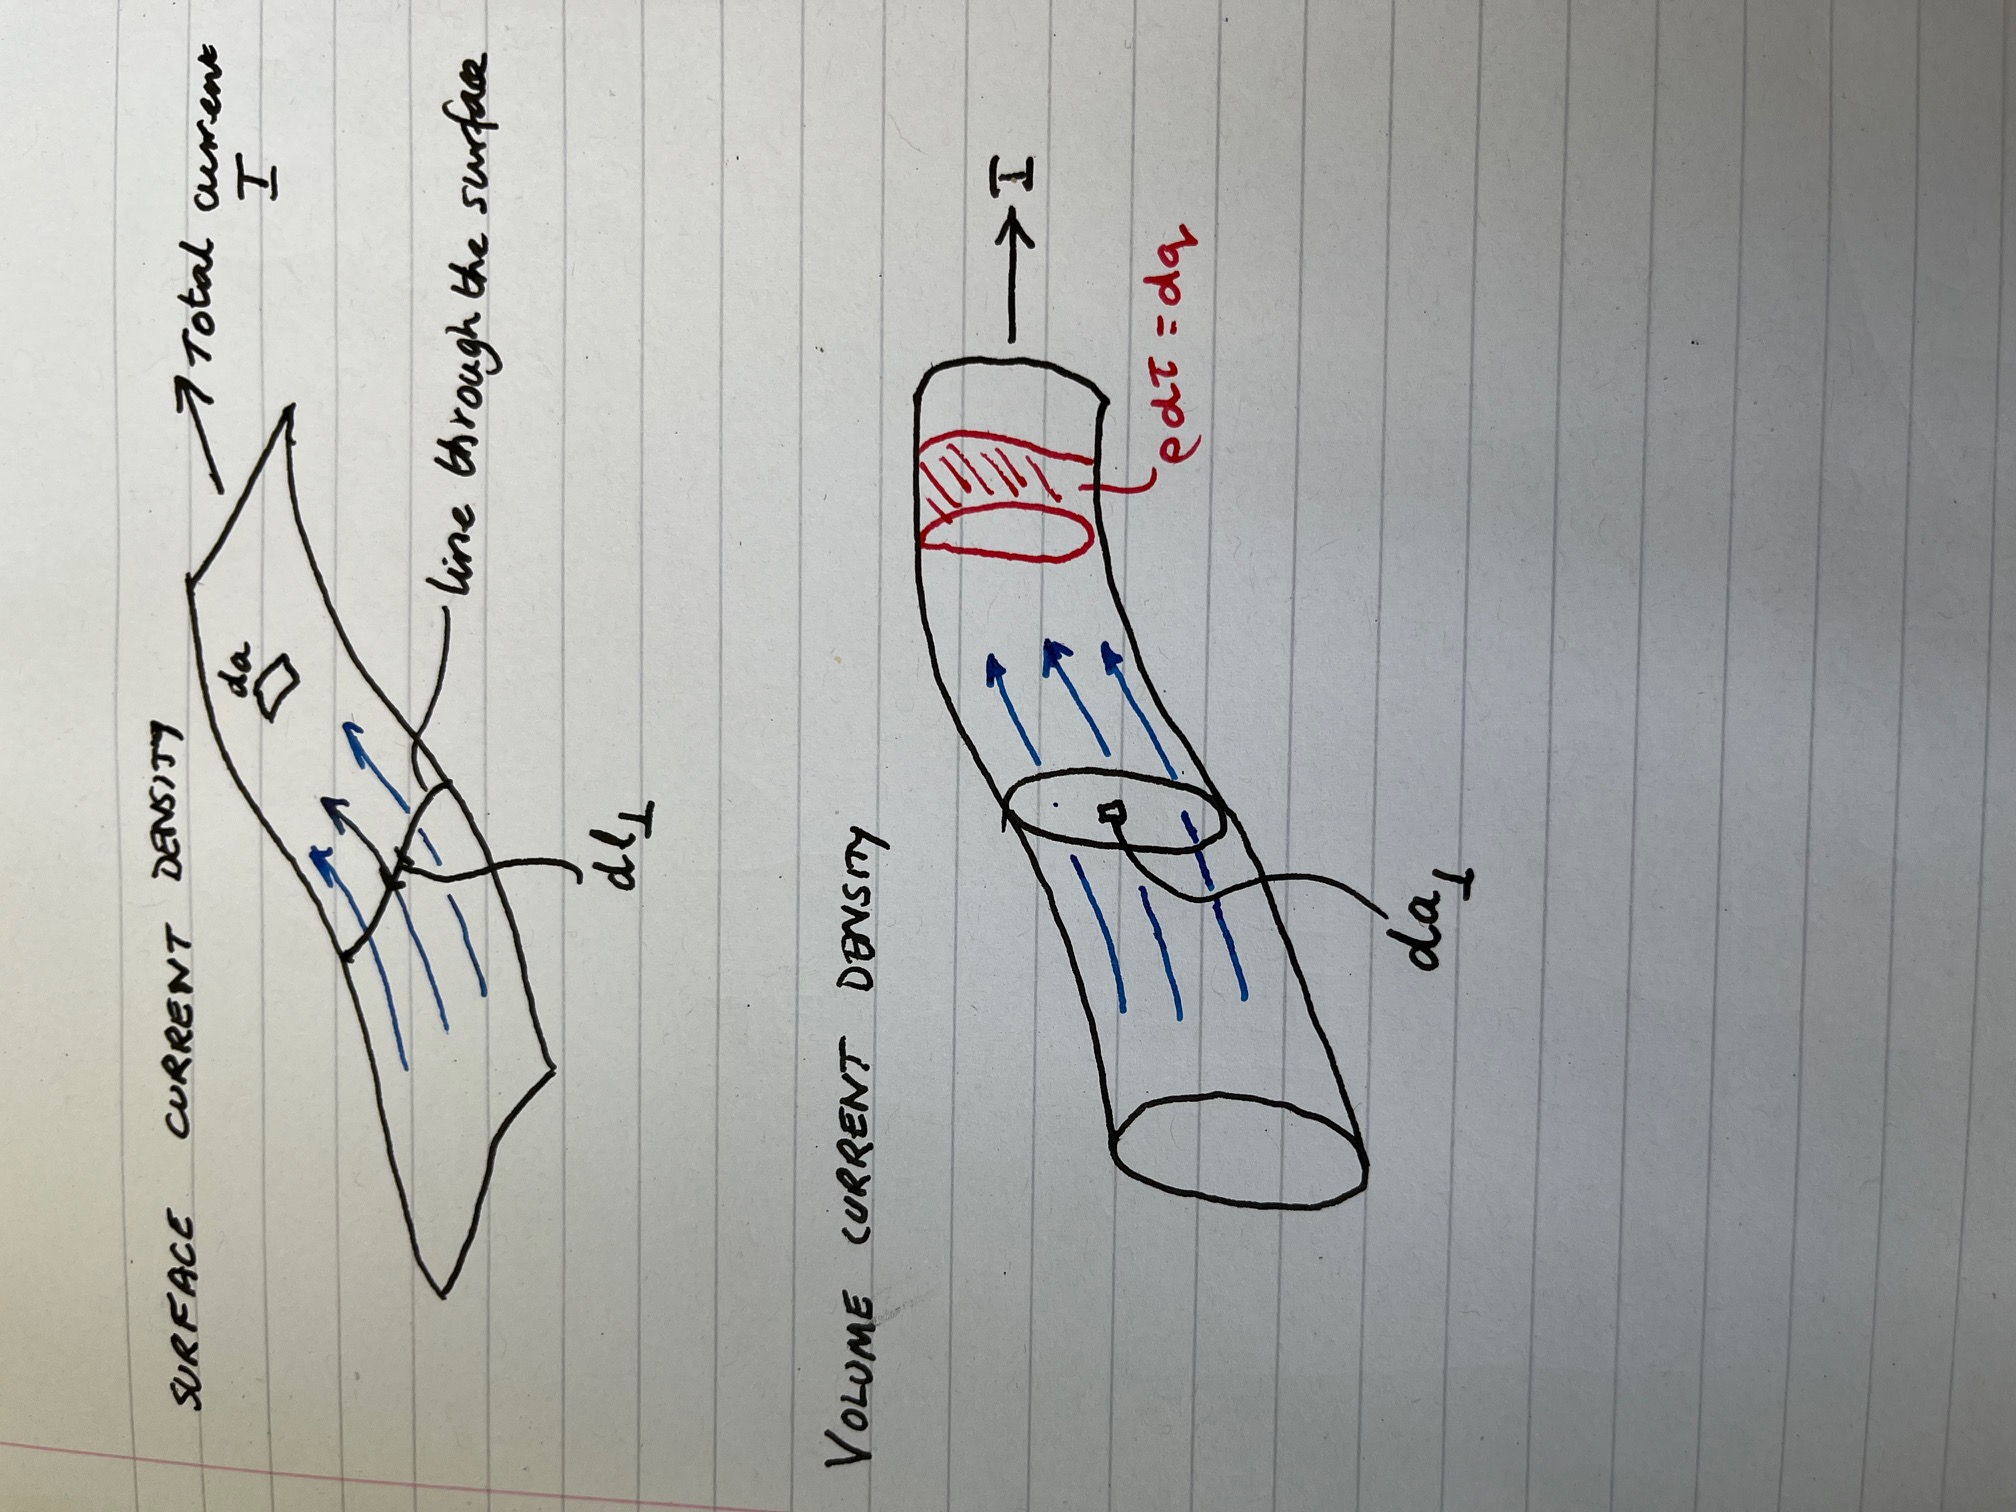 SURFACE CURRENT DENSITY
Total current
I
da
line through the surface
dl⊥
VOLUME CURRENT DENSITY
I
ρdτ = dq
da⊥